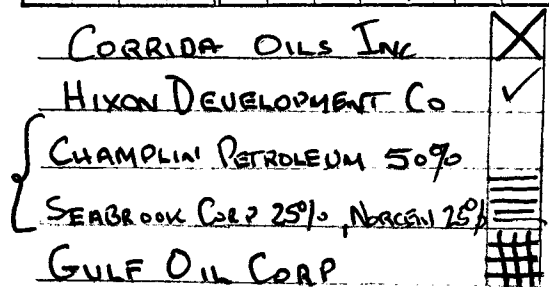 CORRIDA OILS INC
HIXON DEVELOPMENT CO
CHAMPLIN PETROLEUM 50%
SEABROOK CORP 25%, NORCEN 25%
GULF OIL CORP